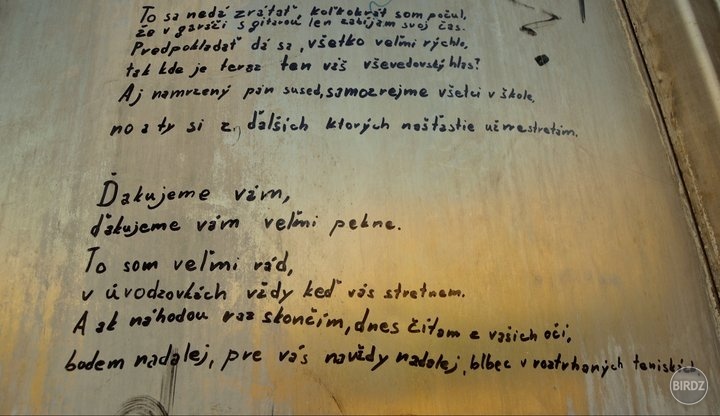 To sa nedá zrátať koľkokrát som počul,
že v garáži s gitarou len zabíjam svoj čas.
Predpokladať dá sa, všetko veľmi rýchlo,
tak kde je teraz ten váš vševedovský hlas?
Aj namrzený pán sused, samozrejme všetci v škole,
no a ty si z ďalších ktorých nešťastie už nestretám.
Ďakujeme vám,
ďakujeme vám veľmi pekne.
To som veľmi rád,
v úvodzovkách vždy keď vás stretnem.
A ak náhodou raz skončím, dnes čítam z vašich očí,
bodem nadalej, pre vás navždy nadalej, blbec v roztrhaných teniskách
BIRDZ